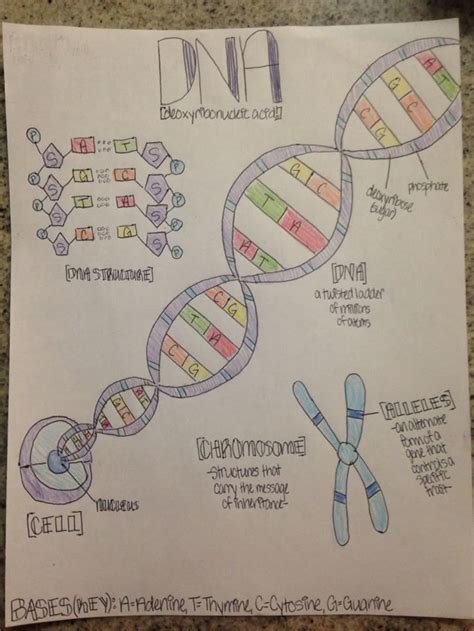 DNA
[deoxyribonucleic acid]
P S A T S P
P S G C S P
P S T A S P
P S C G S P
[DNA STRUCTURE]
A T
G C
C G
phosphate
deoxyribose
(sugar)
G C
T A
A T
[DNA]
a twisted ladder
of millions
of atoms
C G
T A
C G
[CHROMOSOME]
-structures that
carry the message
of inheritance-
[ALLELES]
-an alternate
form of a
gene that
controls a
specific
trait-
nucleus
[CELL]
BASES(KEY): A=Adenine, T=Thymine, C=Cytosine, G=Guanine